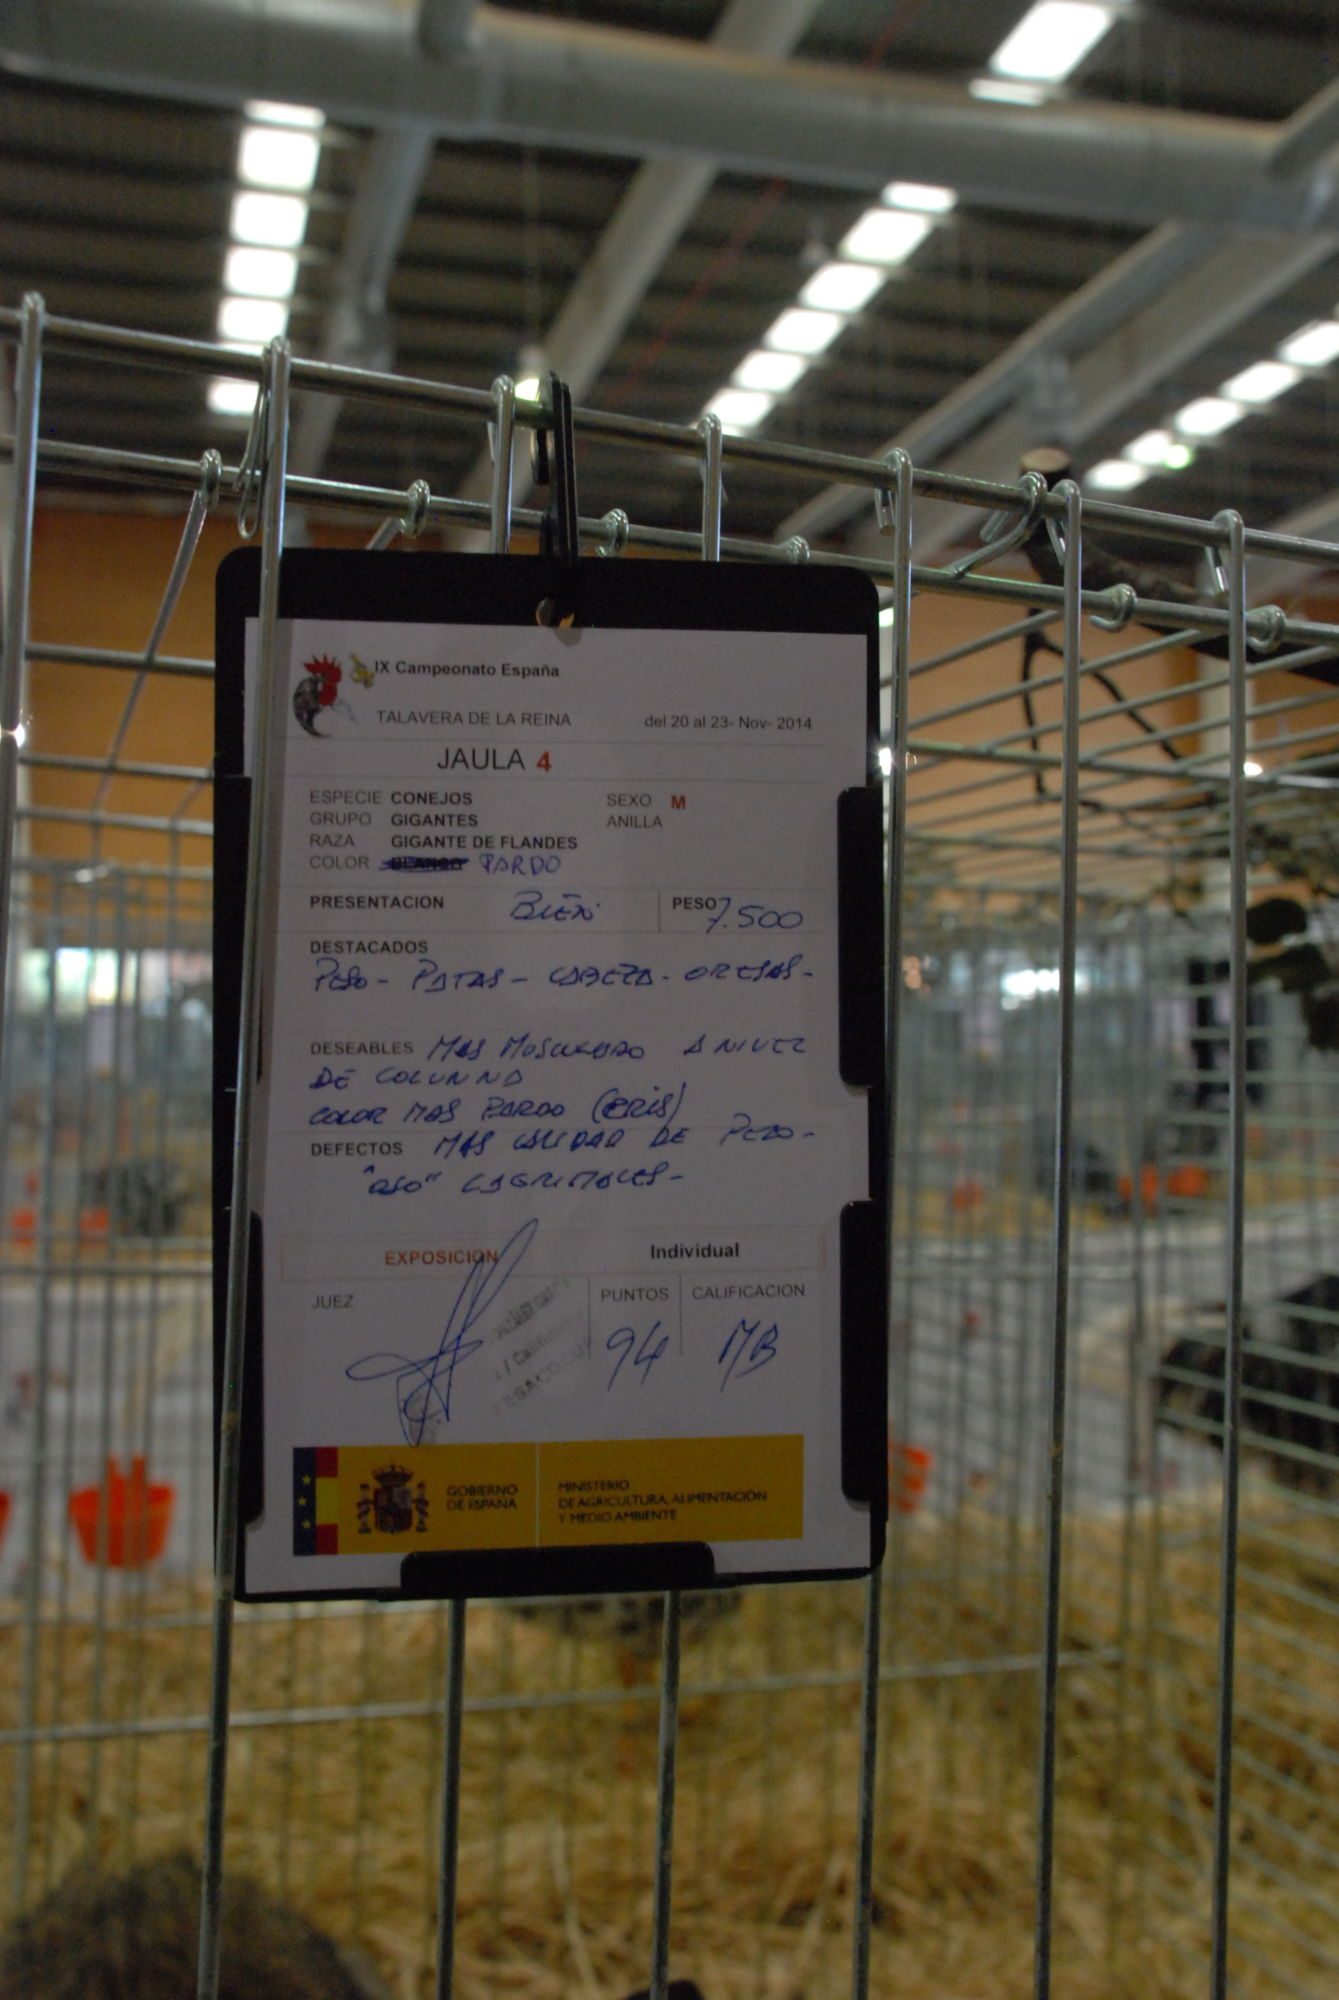 IX Campeonato España
TALAVERA DE LA REINA del 20 al 23- Nov- 2014
JAULA 4
ESPECIE CONEJOS SEXO M
GRUPO GIGANTES ANILLA
RAZA GIGANTE DE FLANDES
COLOR BLANCO PARDO
PRESENTACION BIEN. PESO 7.500
DESTACADOS
PESO - PATAS - CABEZA - OREJAS -
DESEABLES MAS MUSCULADO A NIVEL
DE COLUMNA
COLOR MAS PARDO (GRIS)
DEFECTOS MAS CALIDAD DE PELO -
"OJO" LAGRIMALES -
EXPOSICION Individual
JUEZ PUNTOS CALIFICACION
94 MB
GOBIERNO
DE ESPAÑA
MINISTERIO
DE AGRICULTURA, ALIMENTACIÓN
Y MEDIO AMBIENTE